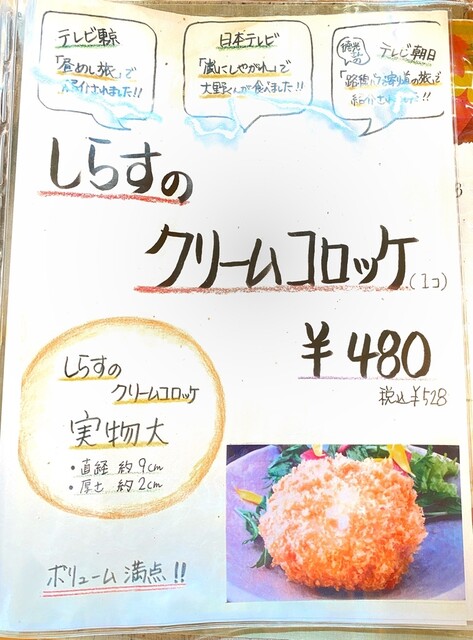 テレビ東京
「昼めし旅」で
紹介されました!!
日本テレビ
「嵐にしやがれ」で
大野くんが食べました!!
テレビ朝日
「路線バス寄り道の旅」で
紹介されました!!
しらすの
クリームコロッケ(1コ)
¥480
税込¥528
しらすの
クリームコロッケ
実物大
・直径 約9cm
・厚さ 約2cm
ボリューム満点!!